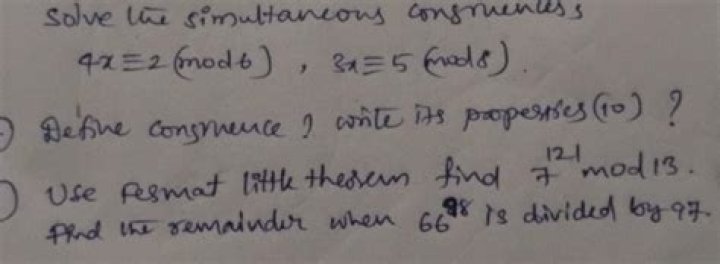 solve the simultaneous congruences
4x ≡ 2 (mod 6) , 3x ≡ 5 (mod 8).
Define congruence ? write its properties (10) ?
Use fermat little theorem find 7^121 mod 13.
find the remainder when 66^98 is divided by 97.